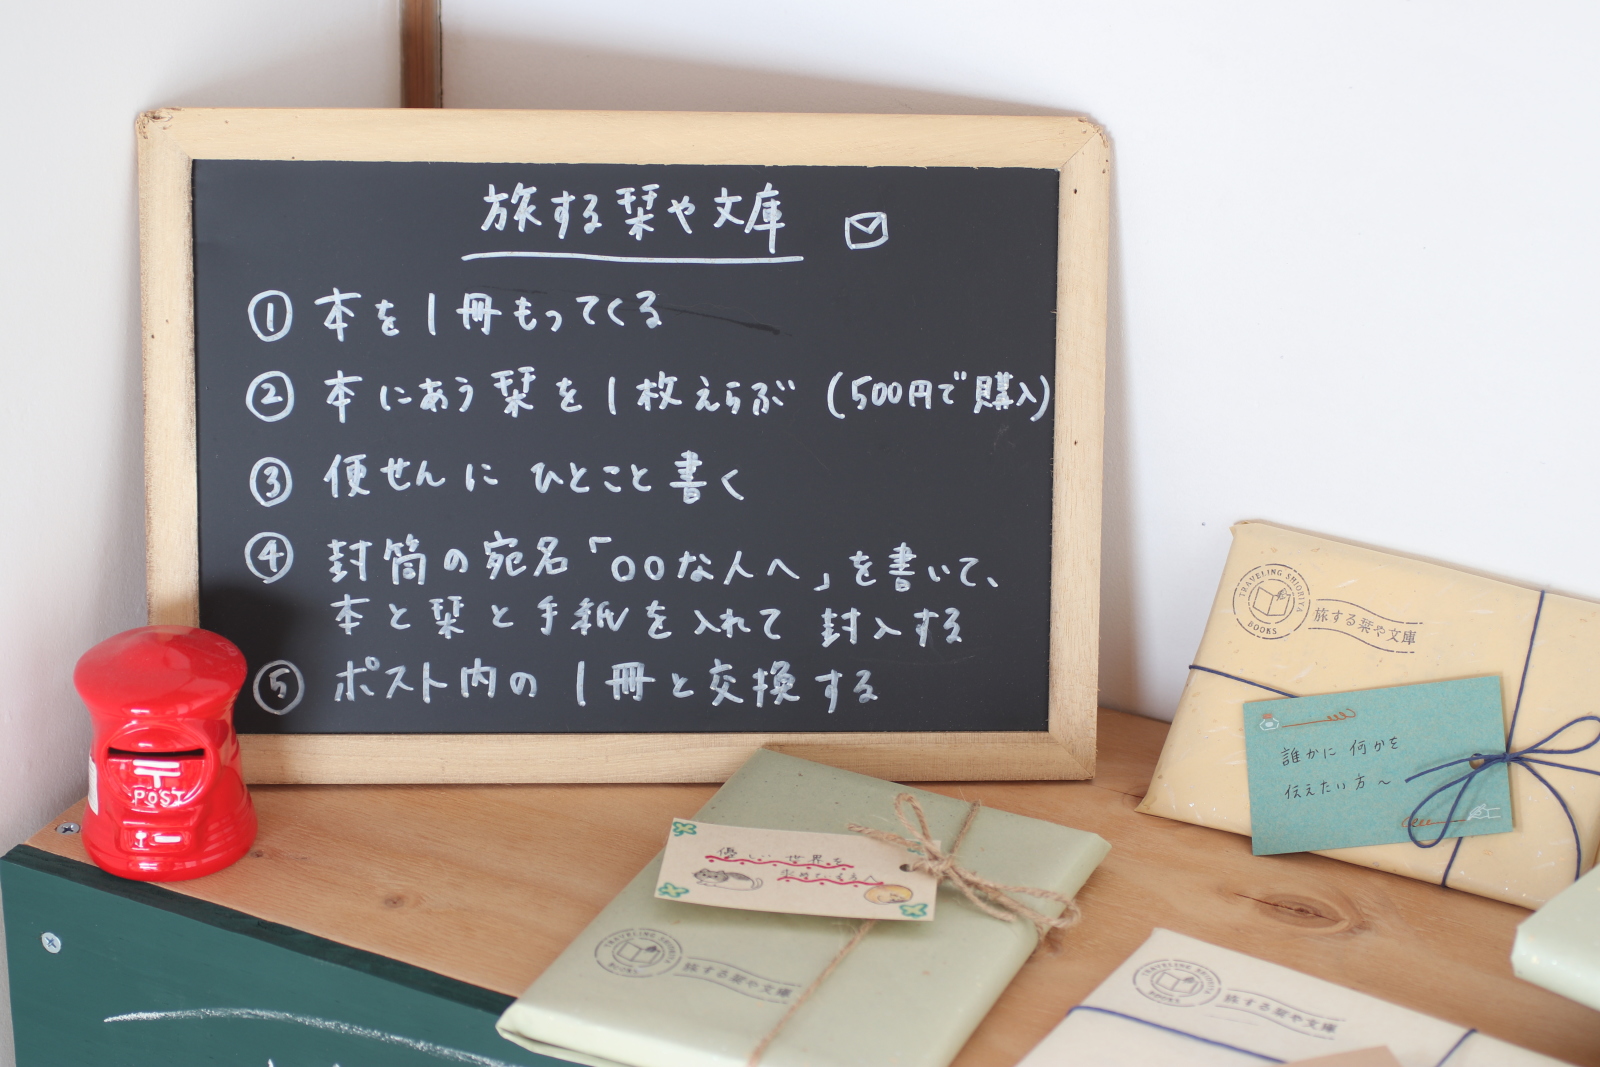 旅する栞や文庫
① 本を1冊もってくる
② 本にあう栞を1枚えらぶ (500円で購入)
③ 便せんに ひとこと書く
④ 封筒の宛名「○○な人へ」を書いて、
本と栞と手紙を入れて 封入する
⑤ ポスト内の 1冊と交換する
〒
POST
TRAVELING SHIORIYA
BOOKS
旅する栞や文庫
誰かに 何かを
伝えたい方へ
優しい世界を
TRAVELING SHIORIYA
BOOKS
旅する栞や文庫
TRAVELING SHIORIYA
BOOKS
旅する栞や文庫